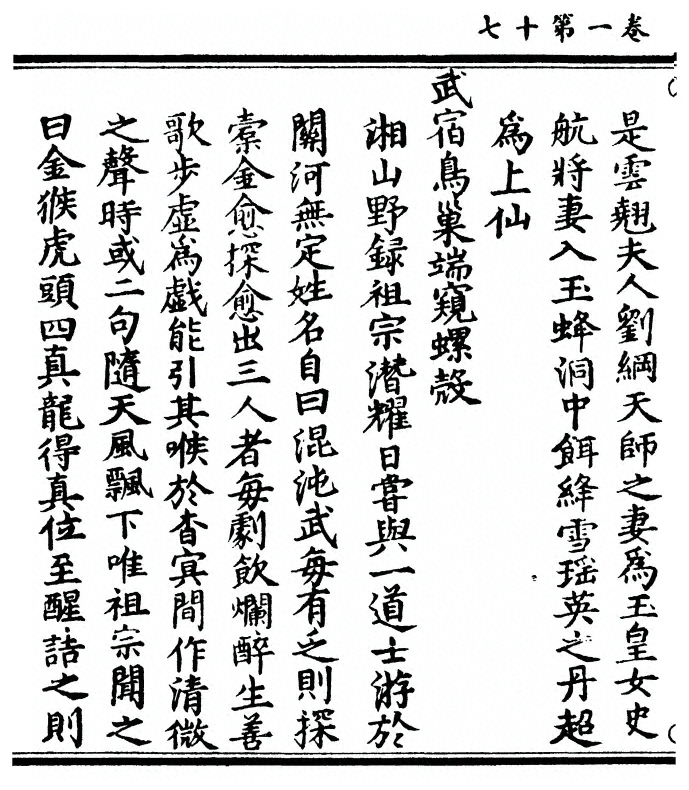 卷一第十七
是雲翹夫人劉綱天師之妻爲玉皇女史
航將妻入玉蜂洞中餌絳雪瑶英之丹超
爲上仙
武宿鳥巢端窺螺殼
湘山野録祖宗潛耀日嘗與一道士游於
關河無定姓名自曰混沌武每有乏則探
囊金愈探愈出三人者每劇飲爛醉生善
歌步虛爲戲能引其喉於杳冥間作清微
之聲時或二句隨天風飄下唯祖宗聞之
曰金猴虎頭四真龍得真位至醒詰之則